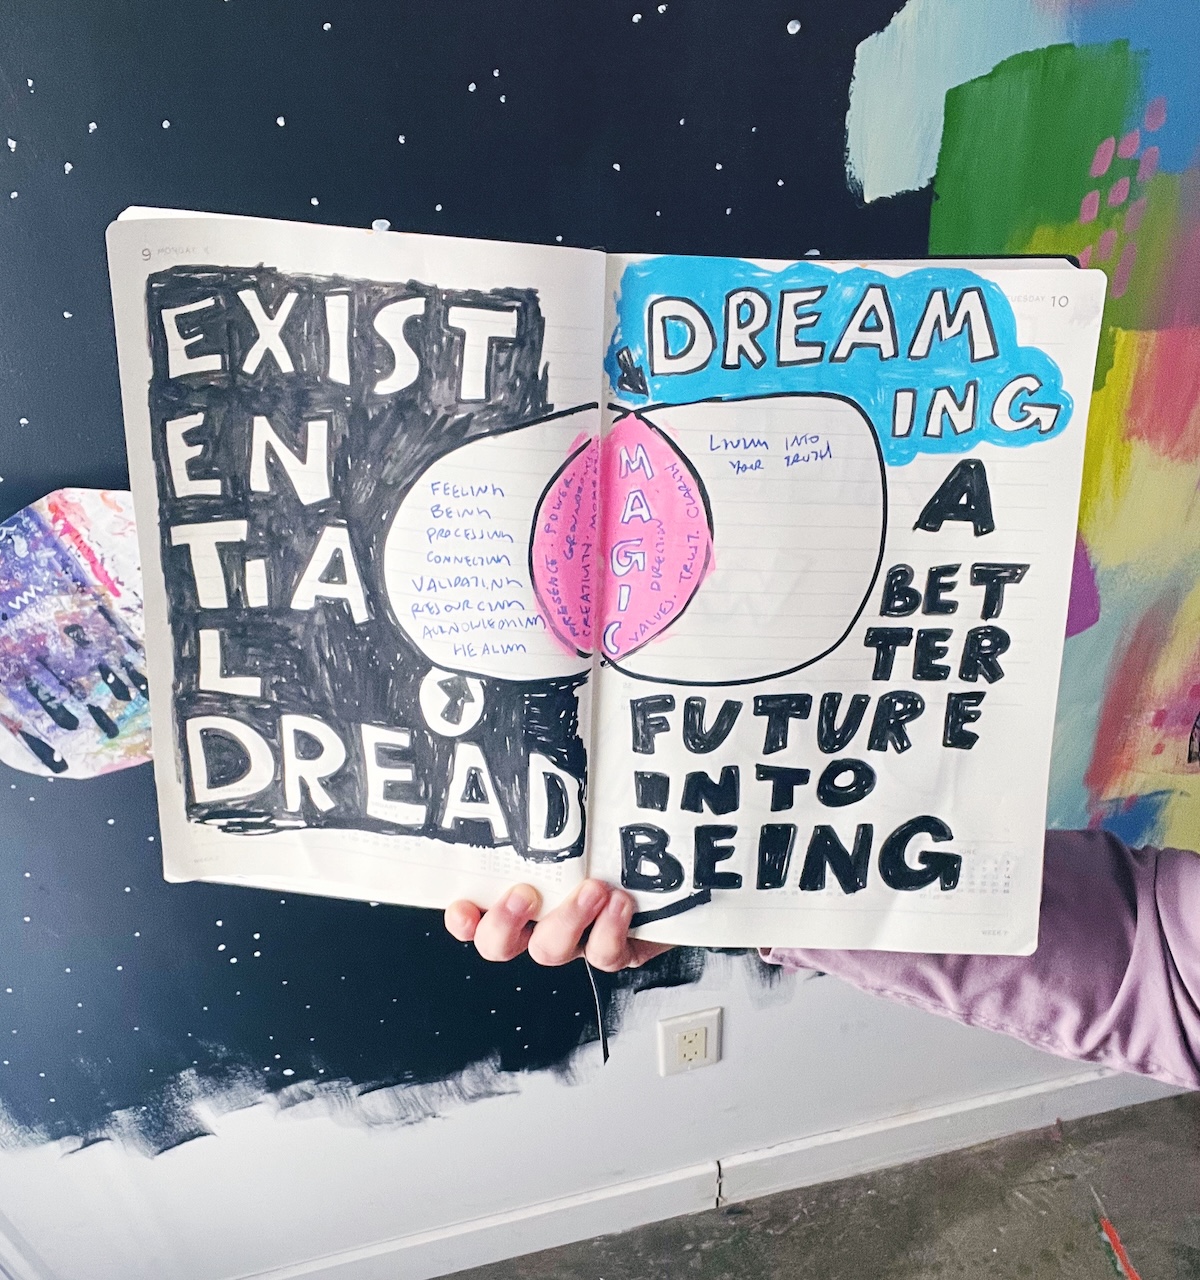 9 MONDAY
EXIST
EN
TIA
L
DREAD
FEELING
BEING
PROCESSING
CONNECTING
VALIDATING
RESOURCING
ACKNOWLEDGING
HEALING
PRESENCE. POWER.
GROUNDEDNESS
CREATIVITY.
MAGIC
DIRECTION
VALUES. TRUST. CLARITY
TUESDAY 10
& DREAM
ING
LIVING INTO
YOUR TRUTH
A
BET
TER
FUTURE
INTO
BEING